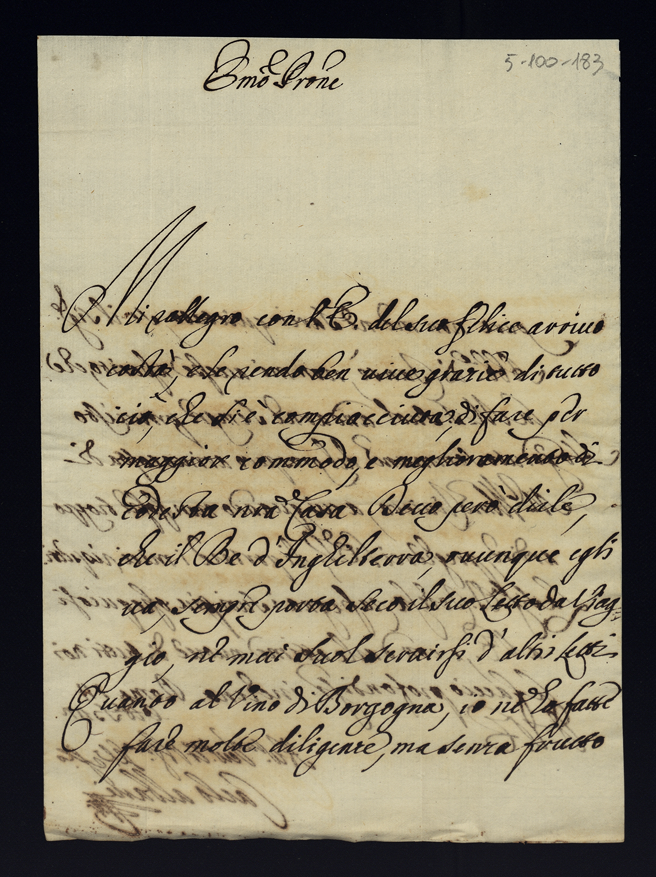 5-100-183
Emo Prone
Mi rallegro con l'E. del suo felice arrivo
costà, e le rendo ben vive grazie di tutto
ciò, che si è compiacciuta di fare per
maggior commodo, e miglioramento di
Codesta nra Casa Devo però dirle,
che il Re d'Inghilterra, ovunque egli
va, sempre porta seco il suo Letto da Viag-
gio, nè mai suol servirsi d'altri Letti
Quanto al Vino di Borgogna, io nè ho fatte
fare molte diligenze, ma senza frutto